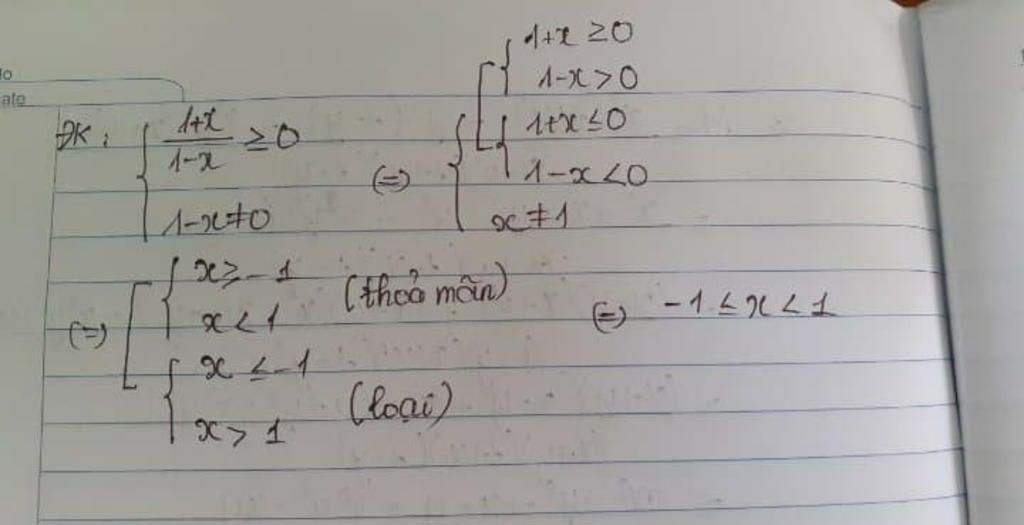 lo
ate
ĐK: { (1+x)/(1-x) ≥ 0
1-x ≠ 0
(=) { [ { 1+x ≥ 0
1-x > 0
{ 1+x ≤ 0
1-x < 0
x ≠ 1
(=) [ { x ≥ -1
x < 1 (thoả mãn)
{ x ≤ -1
x > 1 (loại)
(=) -1 ≤ x < 1